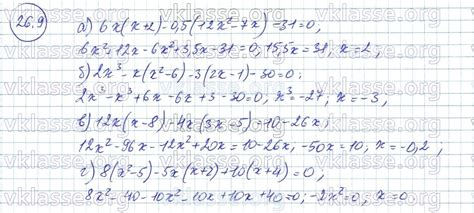 26.9
а) 6x(x+2)-0,5(12x²-7x)-31=0,
6x²+12x-6x²+3,5x-31=0, 15,5x=31, x=2,
б) 2x³-x(x²-6)-3(2x-1)-30=0;
2x³-x³+6x-6x+3-30=0, x³=-27, x=-3,
в) 12x(x-8)-4x(3x-5)=10-26x;
12x²-96x-12x²+20x=10-26x, -50x=10, x=-0,2,
г) 8(x²-5)-5x(x+2)+10(x+4)=0,
8x²-40-10x²-10x+10x+40=0; -2x²=0, x=0
vklasse.org